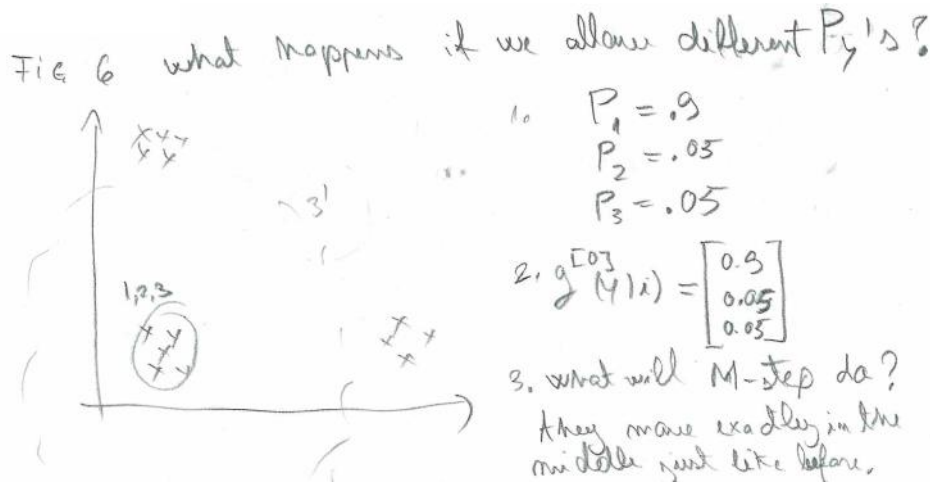 FIG 6 what happens if we allow different P_y's?
1. P_1 = .9
P_2 = .05
P_3 = .05
3'
2. g^[0](y|i) = [0.9
0.05
0.05]
1,2,3
3. what will M-step do?
they move exactly in the
middle just like before.